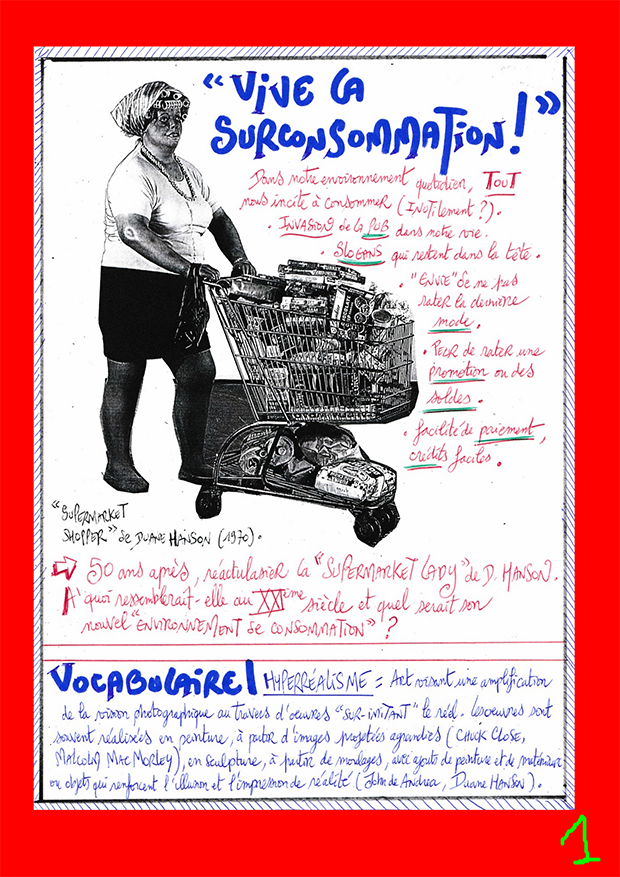 "VIVE LA
SURCONSOMMATION!"
Dans notre environnement quotidien, TOUT
nous incite à consommer (INUTILEMENT?).
• INVASION de la PUB dans notre vie.
• SLOGANS qui restent dans la tête.
• "ENVIE" de ne pas
rater la dernière
mode.
• PEUR de rater une
promotion ou des
soldes.
• facilité de paiement,
crédits faciles.
"SUPERMARKET
SHOPPER" de DUANE HANSON (1970).
⇨ 50 ans après, réactulasier la "SUPERMARKET LADY" de D. HANSON.
A' quoi ressemblerait-elle au XXIème siècle et quel serait son
nouvel "ENVIRONNEMENT de CONSOMMATION" ?
VOCABULAIRE/ HYPERRÉALISME = Art visant une amplification
de la vision photographique au travers d'oeuvres "SUR-IMITANT" le réel. Les oeuvres sont
souvent réalisées en peinture, à partir d'images projetées agrandies (CHUCK CLOSE,
MALCOLM MAC MORLEY), en sculpture, à partir de moulages, avec ajouts de peinture et de matériaux
ou objets qui renforcent l'illusion et l'impression de réalité (John de Andrea, Duane HANSON).
1